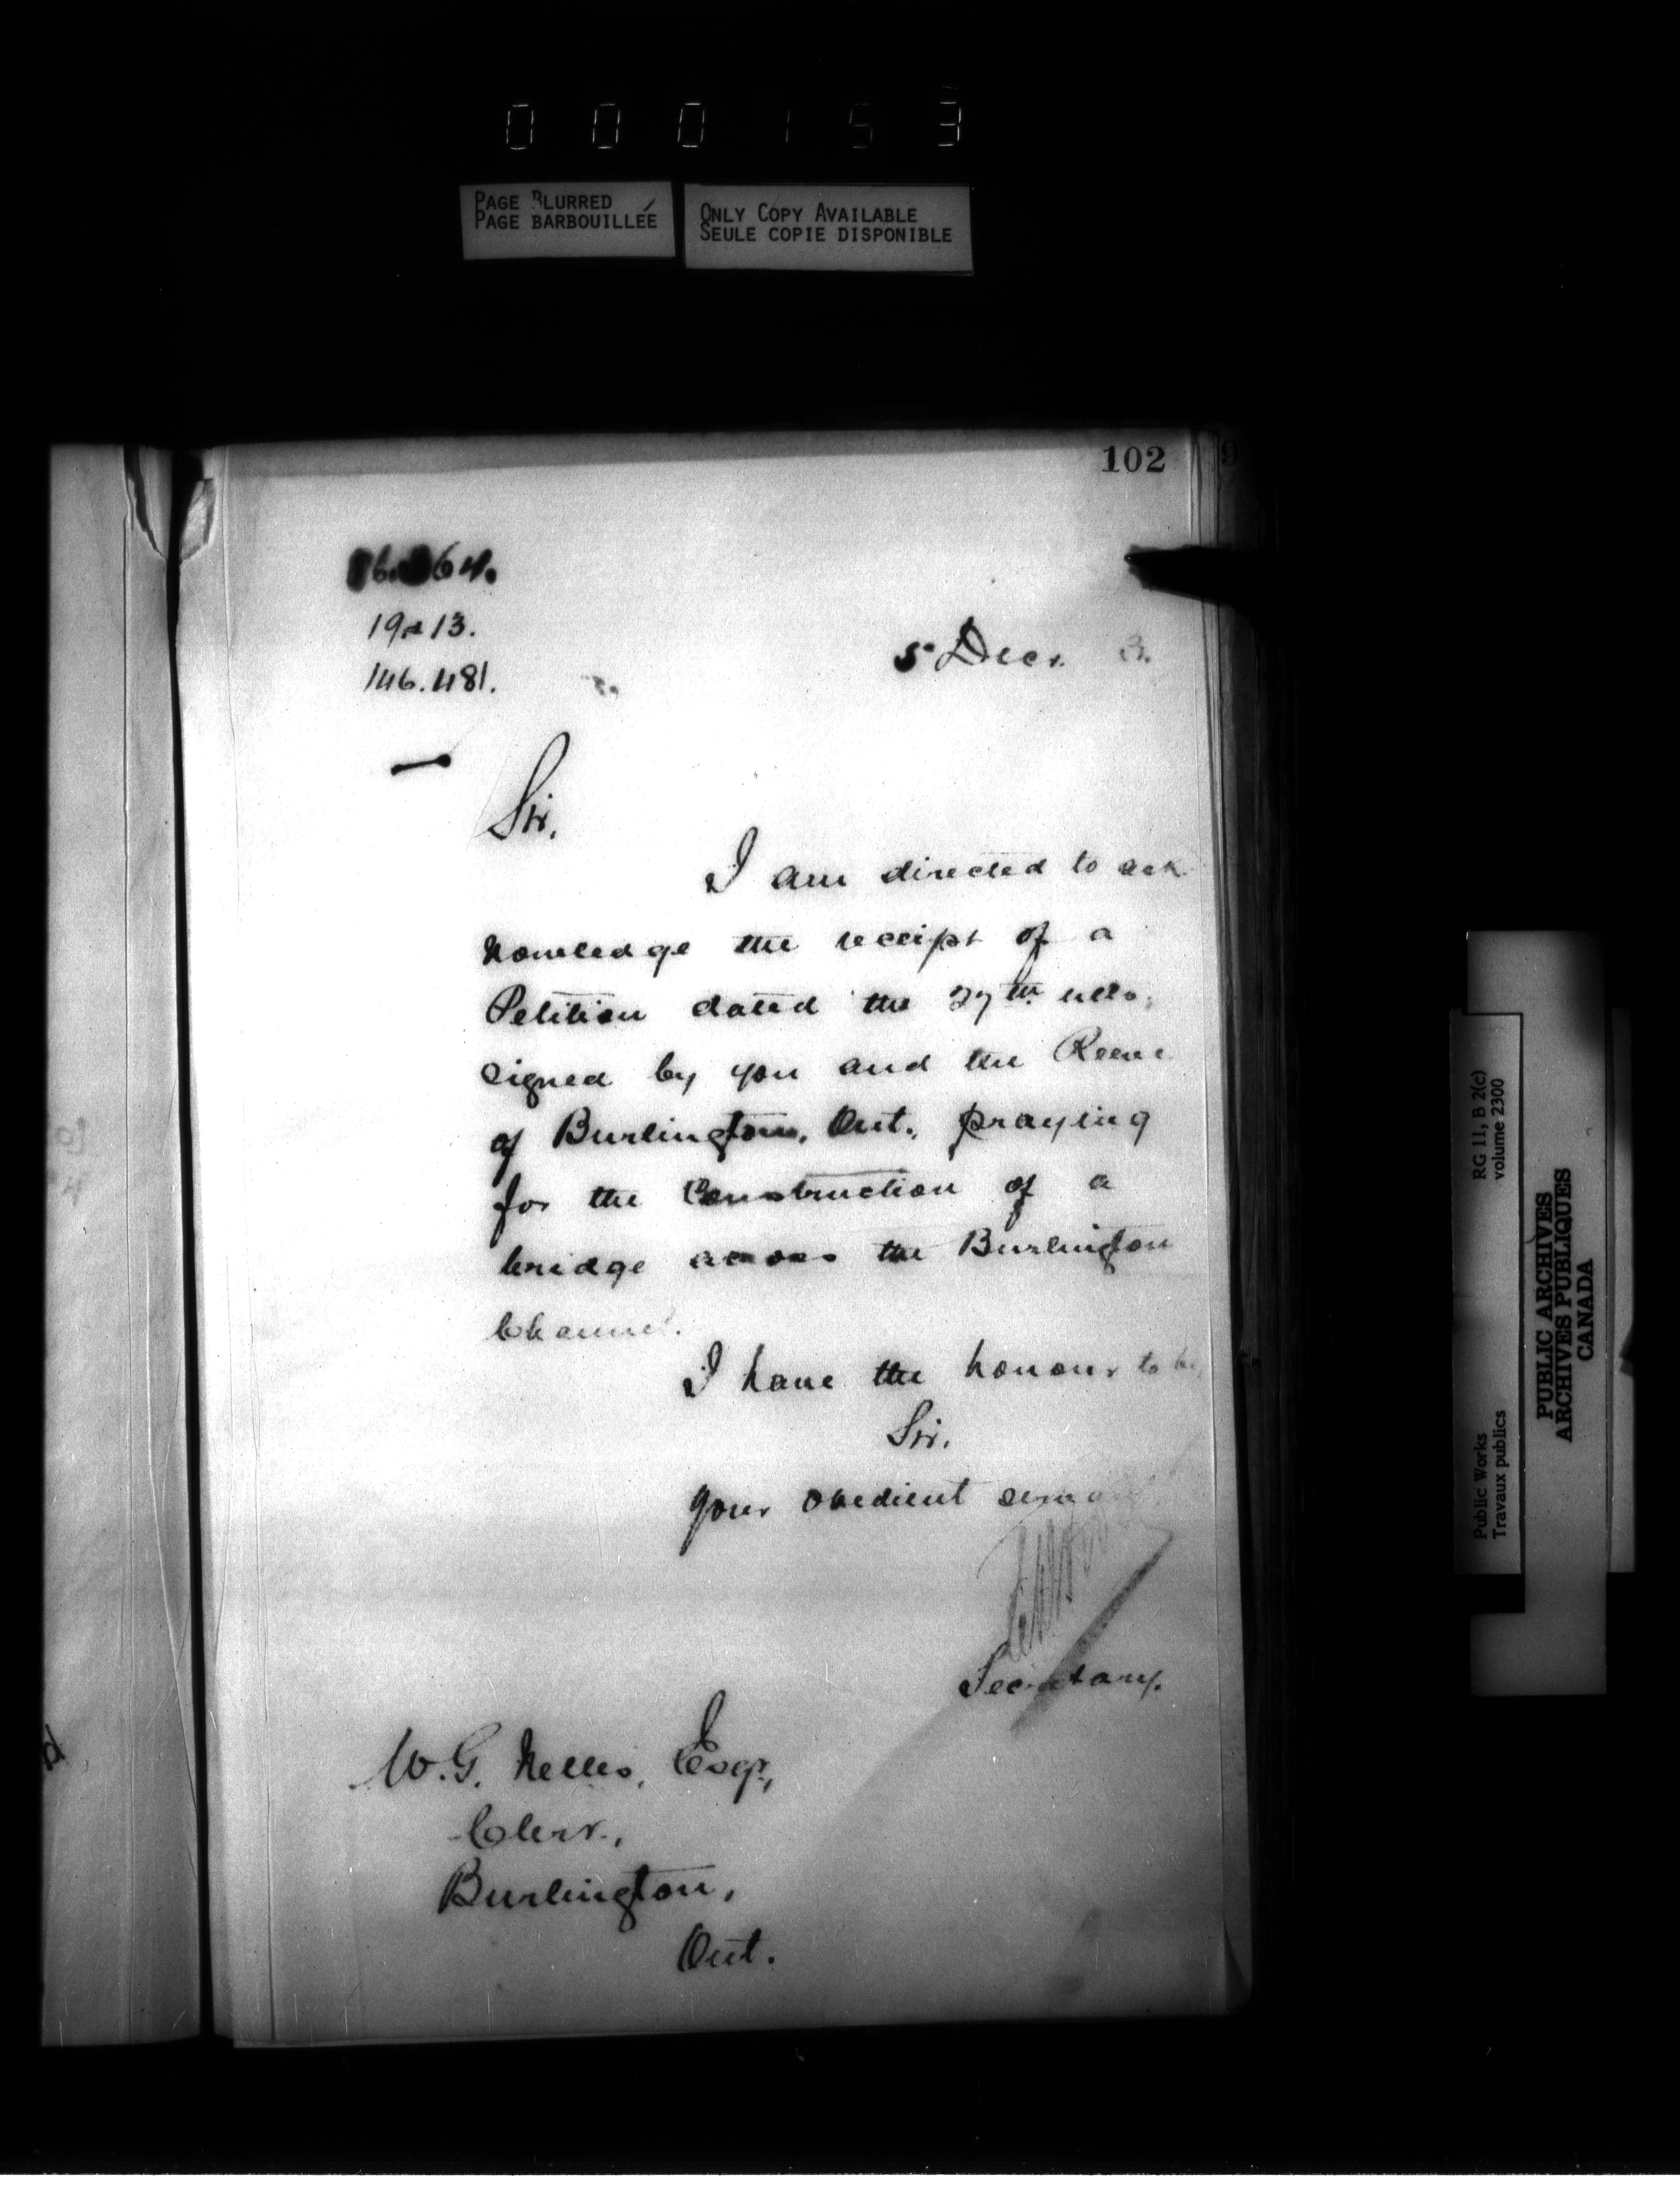 0 0 0 1 5 3
PAGE BLURRED
PAGE BARBOUILLÉE
ONLY COPY AVAILABLE
SEULE COPIE DISPONIBLE
102
9
1913.
146.481.
5 Decr. 3.
Sir,
I am directed to ack
nowledge the receipt of a
Petition dated the 27th ulto,
signed by you and the Reeve
of Burlington, Ont., praying
for the Construction of a
bridge across the Burlington
Channel.
I have the honour to be,
Sir,
your obedient servant
Secretary.
W. G. Nelles, Esqr,
Clerk,
Burlington,
Ont.
Public Works
Travaux publics
RG 11, B 2(c)
volume 2300
PUBLIC ARCHIVES
ARCHIVES PUBLIQUES
CANADA